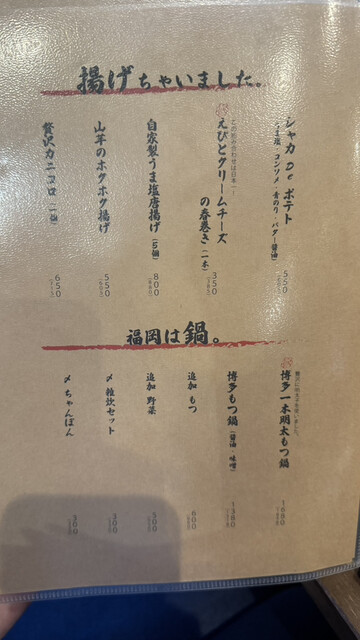 揚げちゃいました。
シャカ De ポテト
うま塩・コンソメ・青のり・バター醤油
550
この組み合わせは日本一！
えびとクリームチーズ
の春巻き(一本)
350
自家製うま塩唐揚げ(5個)
800
山芋のホクホク揚げ
550
贅沢カニクロ(一個)
650
福岡は鍋。
贅沢に明太子を使いました。
博多一本明太もつ鍋
1680
博多もつ鍋(醤油・味噌)
1380
追加 もつ
600
追加 野菜
500
〆 雑炊セット
300
〆 ちゃんぽん
300